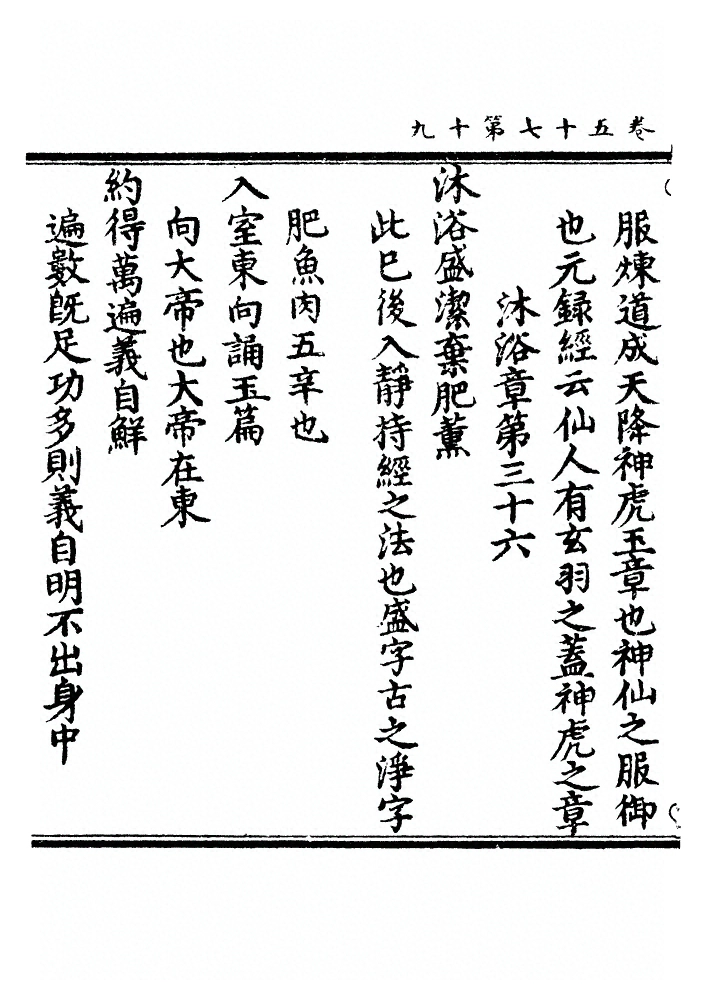 卷五十七第十九
服煉道成天降神虎玉章也神仙之服御
也元録經云仙人有玄羽之蓋神虎之章
沐浴章第三十六
沐浴盛潔棄肥薰
此巳後入靜持經之法也盛字古之淨字
肥魚肉五辛也
入室東向誦玉篇
向大帝也大帝在東
約得萬遍義自鮮
遍數既足功多則義自明不出身中